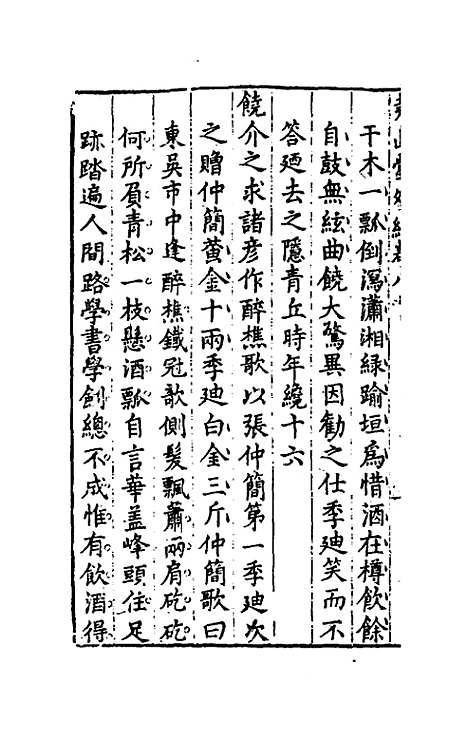 干木一瓢倒瀉瀟湘緑踰垣爲惜酒在樽飲餘
自鼓無絃曲饒大驚異因勸之仕季廸笑而不
答廸去之隱青丘時年纔十六
饒介之求諸彦作醉樵歌以張仲簡第一季廸次
之贈仲簡黄金十兩季廸白金三斤仲簡歌曰
東吳市中逢醉樵鐵冠欹側髮飄蕭兩肩矻矻
何所負青松一枝懸酒瓢自言華盖峰頭住足
跡踏遍人間路學書學劍總不成惟有飲酒得